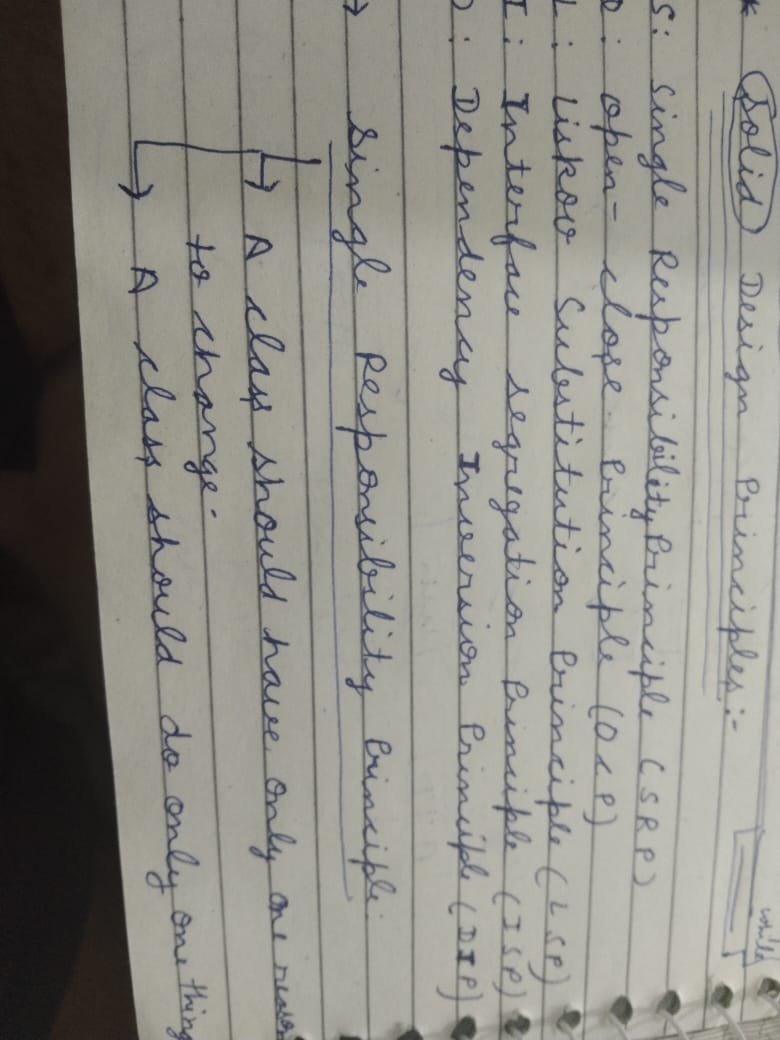 while
* Solid Design Principles:-
S: Single Responsibility Principle (SRP)
O: open- close Principle (OCP)
L: Liskov Substitution Principle (LSP)
I: Interface segregation Principle (ISP)
D: Dependency Inversion Principle (DIP)
→ Single Responsibility Principle:
↳ A class should have only one reason
to change.
↳ A class should do only one thing